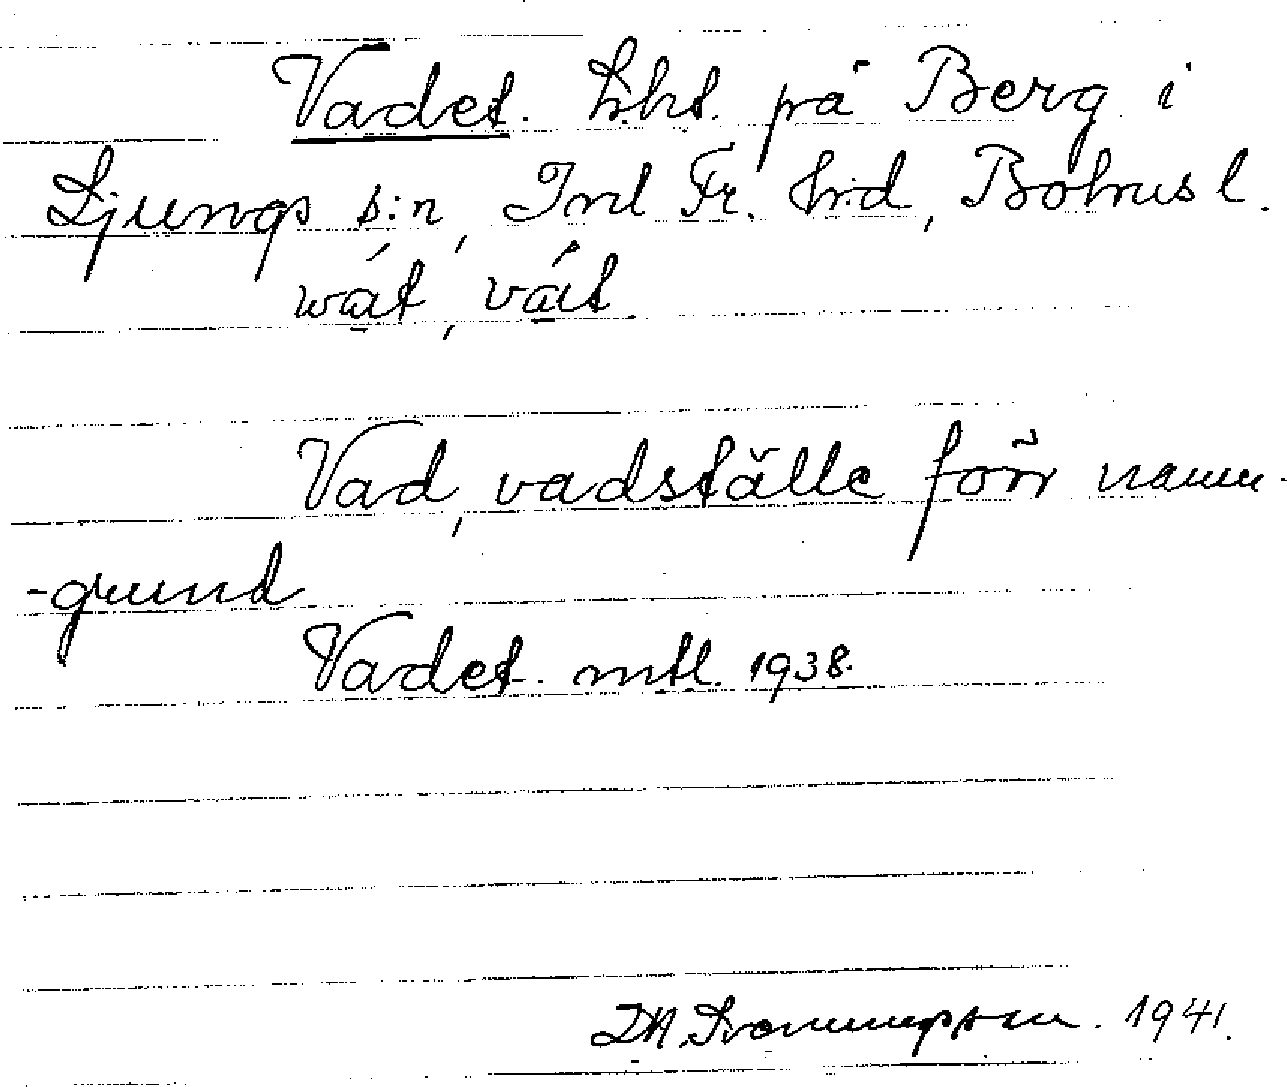 Vadet. Lht. på Berg i
Ljungs s:n, Inl Fr. hrd, Bohusl.
wát, vát
Vad, vadställe förr namn-
-grund
Vadet. mtl. 1938.
1941.